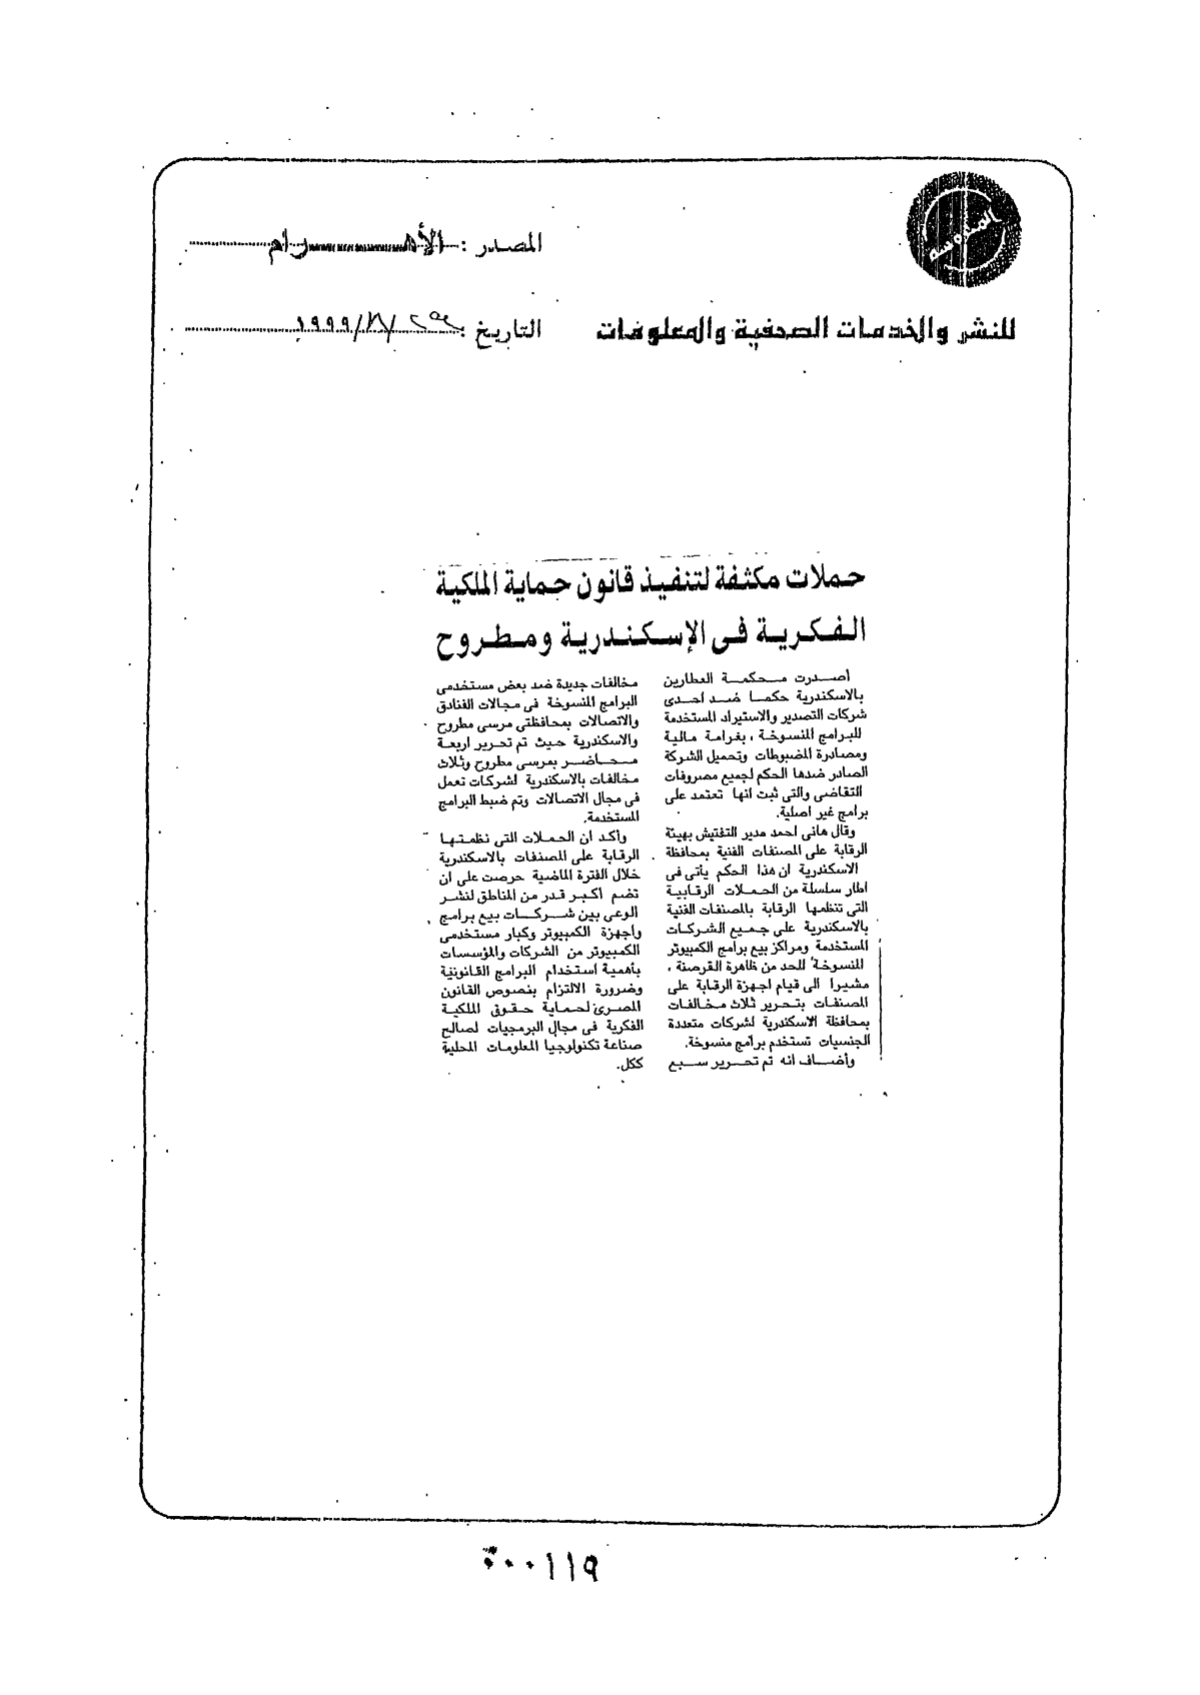 المصدر : الأهـــــــرام
للنشر والخدمات الصحفية والمعلومات
التاريخ : ١٩٩٩/٨/
حملات مكثفة لتنفيذ قانون حماية الملكية
الفكرية فى الإسكندرية ومطروح
أصدرت محكمة العطارين
بالاسكندرية حكما ضد احدى
شركات التصدير والاستيراد المستخدمة
للبرامج المنسوخة ، بغرامة مالية
ومصادرة المضبوطات وتحميل الشركة
الصادر ضدها الحكم لجميع مصروفات
التقاضى والتى ثبت انها تعتمد على
برامج غير اصلية.
وقال هانى احمد مدير التفتيش بهيئة
الرقابة على المصنفات الفنية بمحافظة
الاسكندرية ان هذا الحكم يأتى فى
اطار سلسلة من الحملات الرقابية
التى تنظمها الرقابة بالمصنفات الفنية
بالاسكندرية على جميع الشركات
المستخدمة ومراكز بيع برامج الكمبيوتر
المنسوخة للحد من ظاهرة القرصنة ،
مشيرا الى قيام اجهزة الرقابة على
المصنفات بتحرير ثلاث مخالفات
بمحافظة الاسكندرية لشركات متعددة
الجنسيات تستخدم برامج منسوخة.
وأضاف انه تم تحرير سبع
مخالفات جديدة ضد بعض مستخدمى
البرامج المنسوخة فى مجالات الفنادق
والاتصالات بمحافظتى مرسى مطروح
والاسكندرية حيث تم تحرير اربعة
محاضر بمرسى مطروح وثلاث
مخالفات بالاسكندرية لشركات تعمل
فى مجال الاتصالات وتم ضبط البرامج
المستخدمة.
وأكد ان الحملات التى نظمتها
الرقابة على المصنفات بالاسكندرية
خلال الفترة الماضية حرصت على ان
تضم اكبر قدر من المناطق لنشر
الوعى بين شركات بيع برامج
وأجهزة الكمبيوتر وكبار مستخدمى
الكمبيوتر من الشركات والمؤسسات
بأهمية استخدام البرامج القانونية
وضرورة الالتزام بنصوص القانون
المصرى لحماية حقوق الملكية
الفكرية فى مجال البرمجيات لصالح
صناعة تكنولوجيا المعلومات المحلية
ككل.